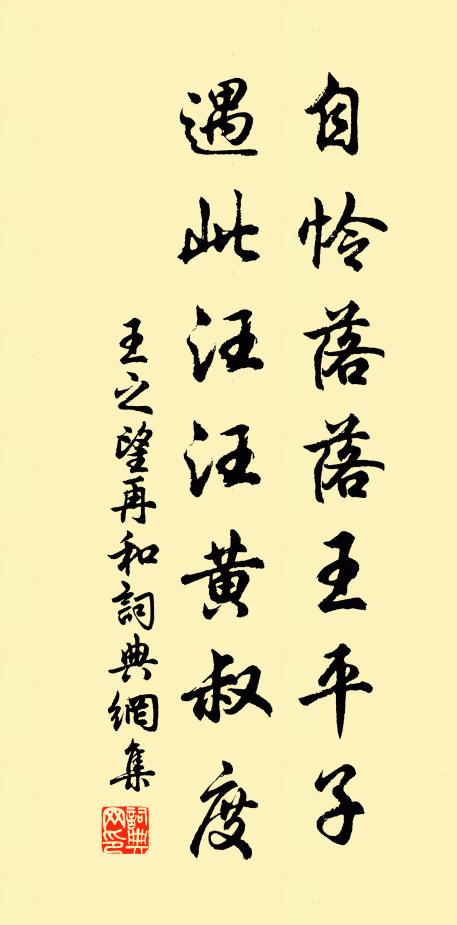 自怜落落王平子
遇此汪汪黄叔度
王之望再和詞典網集
詞典网印